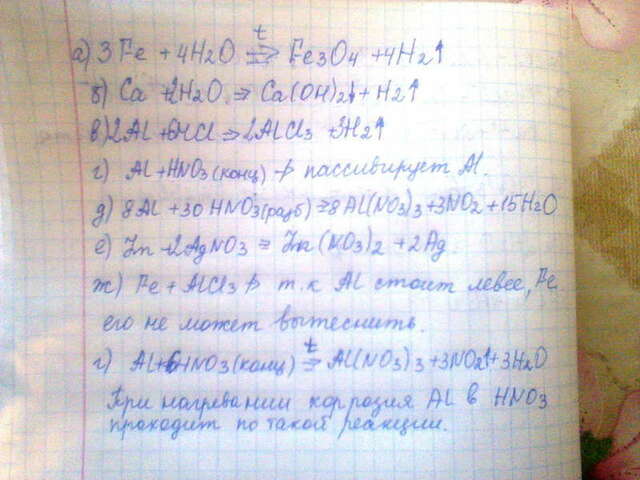 а) 3Fe + 4H2O ⇄ᵗ Fe3O4 + 4H2↑
б) Ca + 2H2O ⇒ Ca(OH)2↓ + H2↑
в) 2Al + 6HCl ⇒ 2AlCl3 + 3H2↑
г) Al + HNO3 (конц) ↛ пассивирует Al.
д) 8Al + 30HNO3 (разб) ⇒ 8Al(NO3)3 + 3NO2 + 15H2O
е) Zn + 2AgNO3 = Zn(NO3)2 + 2Ag.
ж) Fe + AlCl3 ↛ т.к Al стоит левее, Fe
его не может вытеснить.
г) Al + 6HNO3 (конц) ᵗ⇒ Al(NO3)3 + 3NO2↑ + 3H2O
При нагревании коррозия Al в HNO3
проходит по такой реакции.